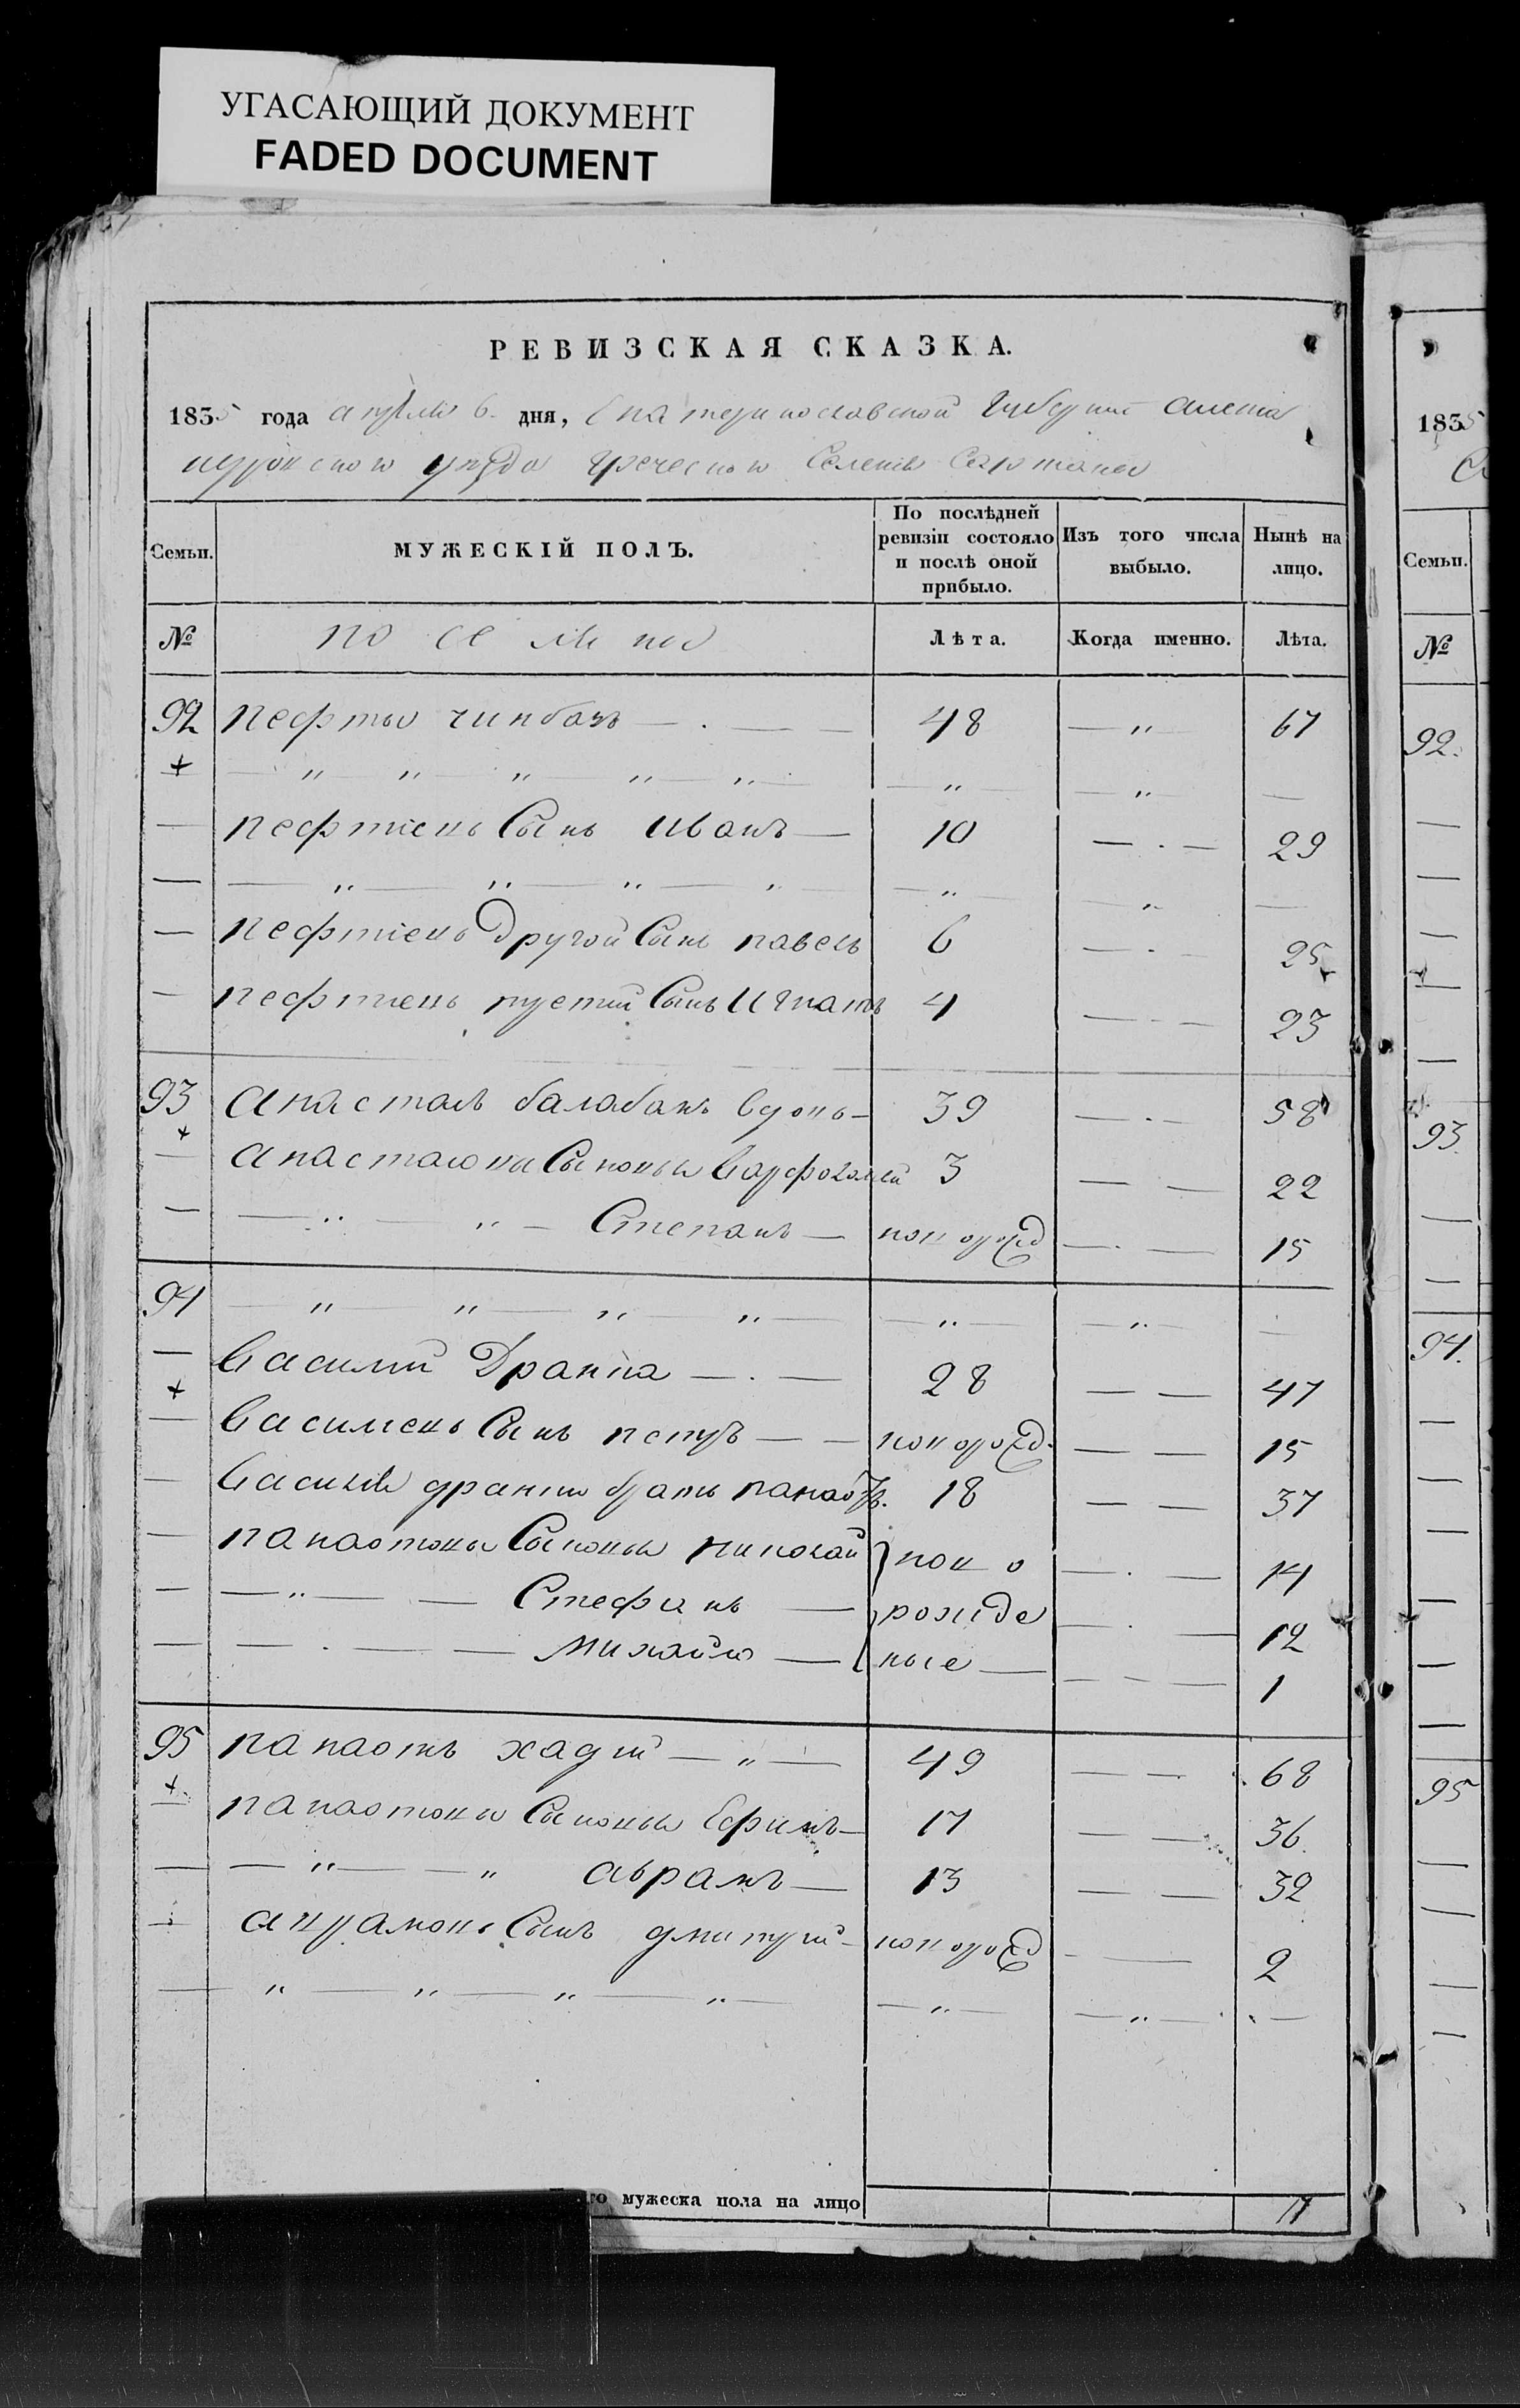 УГАСАЮЩИЙ ДОКУМЕНТ
FADED DOCUMENT
РЕВИЗСКАЯ СКАЗКА.
1835 года апреля 6. дня, Екатеринославской Губернии алекса
ндровского уезда Греческого Селения Сартаны
1835
Семьи.
МУЖЕСКІЙ ПОЛЪ.
По послѣдней ревизіи состояло и послѣ оной прибыло.
Изъ того числа выбыло.
Нынѣ на лицо.
Семьи.
№
поселяне
Лѣта.
Когда именно.
Лѣта.
№
92 пефты чинбаръ — 48 — " — 67
92.
+ — " — " — " — " — " — — " — — " — —
— пефтіевъ Сынъ иванъ — 10 — . — 29
— — " — " — " — " — — " — — " — —
— пефтіевъ другой Сынъ павелъ 6 — . — 25
— пефтіевъ третій Сынъ Игнатъ 4 — . — 23
93 анастасъ балабанъ вдовъ — 39 — . — 58
93.
+ — анастасовы Сыновья варфоломей 3 — — 22
— — " — " — Степанъ — новорожд — . — 15
94 — " — " — " — " — — " — — " — —
94.
— Василій Драніа — . — 28 — — 47
+ — Васильевъ Сынъ петръ — — новорожд. — — 15
— Василія драніи братъ панаотъ. 18 — — 37
— панаотовы Сыновья николай } ново — . — 14
— — " — — Стефанъ — рожде — . — 12
— — . — — михайло — ные — — — — 1
95 панаотъ хаджи — " — 49 — — 68
95
+ — панаотовы Сыновья Ефимъ — 17 — — 36.
— — " — — " аврамъ — 13 — — 32
— аврамовъ Сынъ дмитрій — новорожд — — 2
— " — " — " — " — — " — — " — —
го мужеска пола на лицо 17